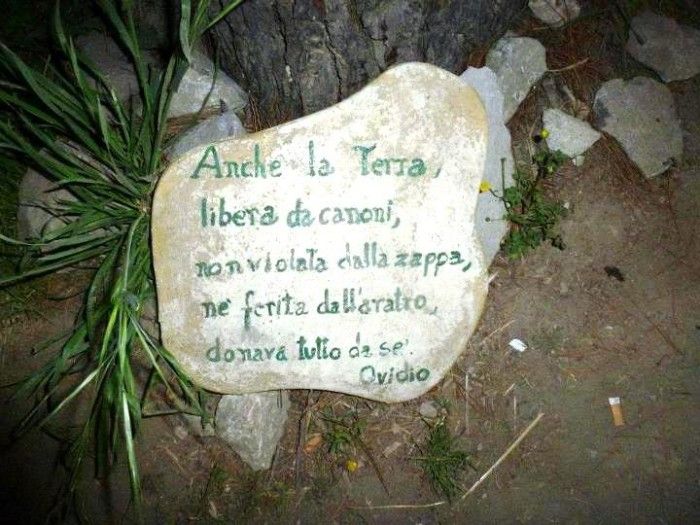 Anche la Terra,
libera da canoni,
non violata dalla zappa,
ne' ferita dall'aratro,
donava tutto da se'.
Ovidio